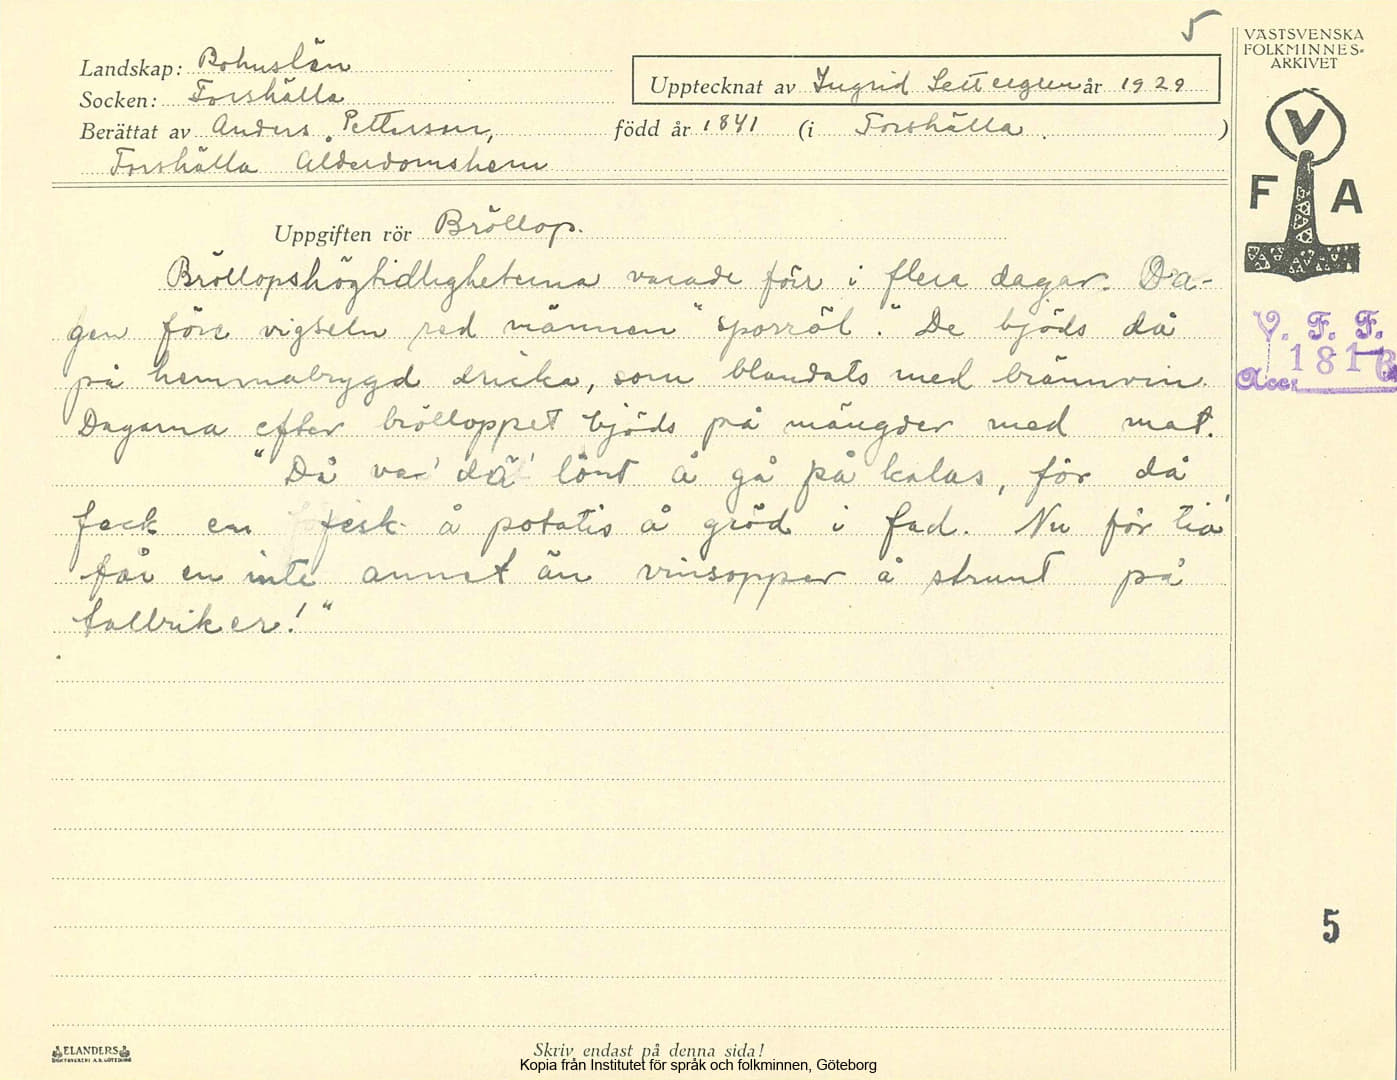 5
VÄSTSVENSKA
FOLKMINNES-
ARKIVET
Landskap: Bohuslän
Socken: Forshälla
Upptecknat av Ingrid Settergren år 1929
Berättat av Anders Pettersson, född år 1841 (i Forshälla.)
Forshälla Ålderdomshem
V
F A
Uppgiften rör Bröllop.
Bröllopshögtidligheterna varade förr i flera dagar. Da-
gen före vigseln red männen "sporröl". De bjöds då
på hemmabrygd dricka, som blandats med brännvin.
Dagarna efter brölloppet bjöds på mängder med mat.
"Då var' dä' lönt å gå på kalas, för då
feck en fesk å potatis å gröd i fad. Nu för tia'
får en inte annat än vinsopper å strunt på
tallriker!"
V. F. F.
Acc. 1816
5
ELANDERS
BOKTRYCKERI A.B. GÖTEBORG
Skriv endast på denna sida!
Kopia från Institutet för språk och folkminnen, Göteborg